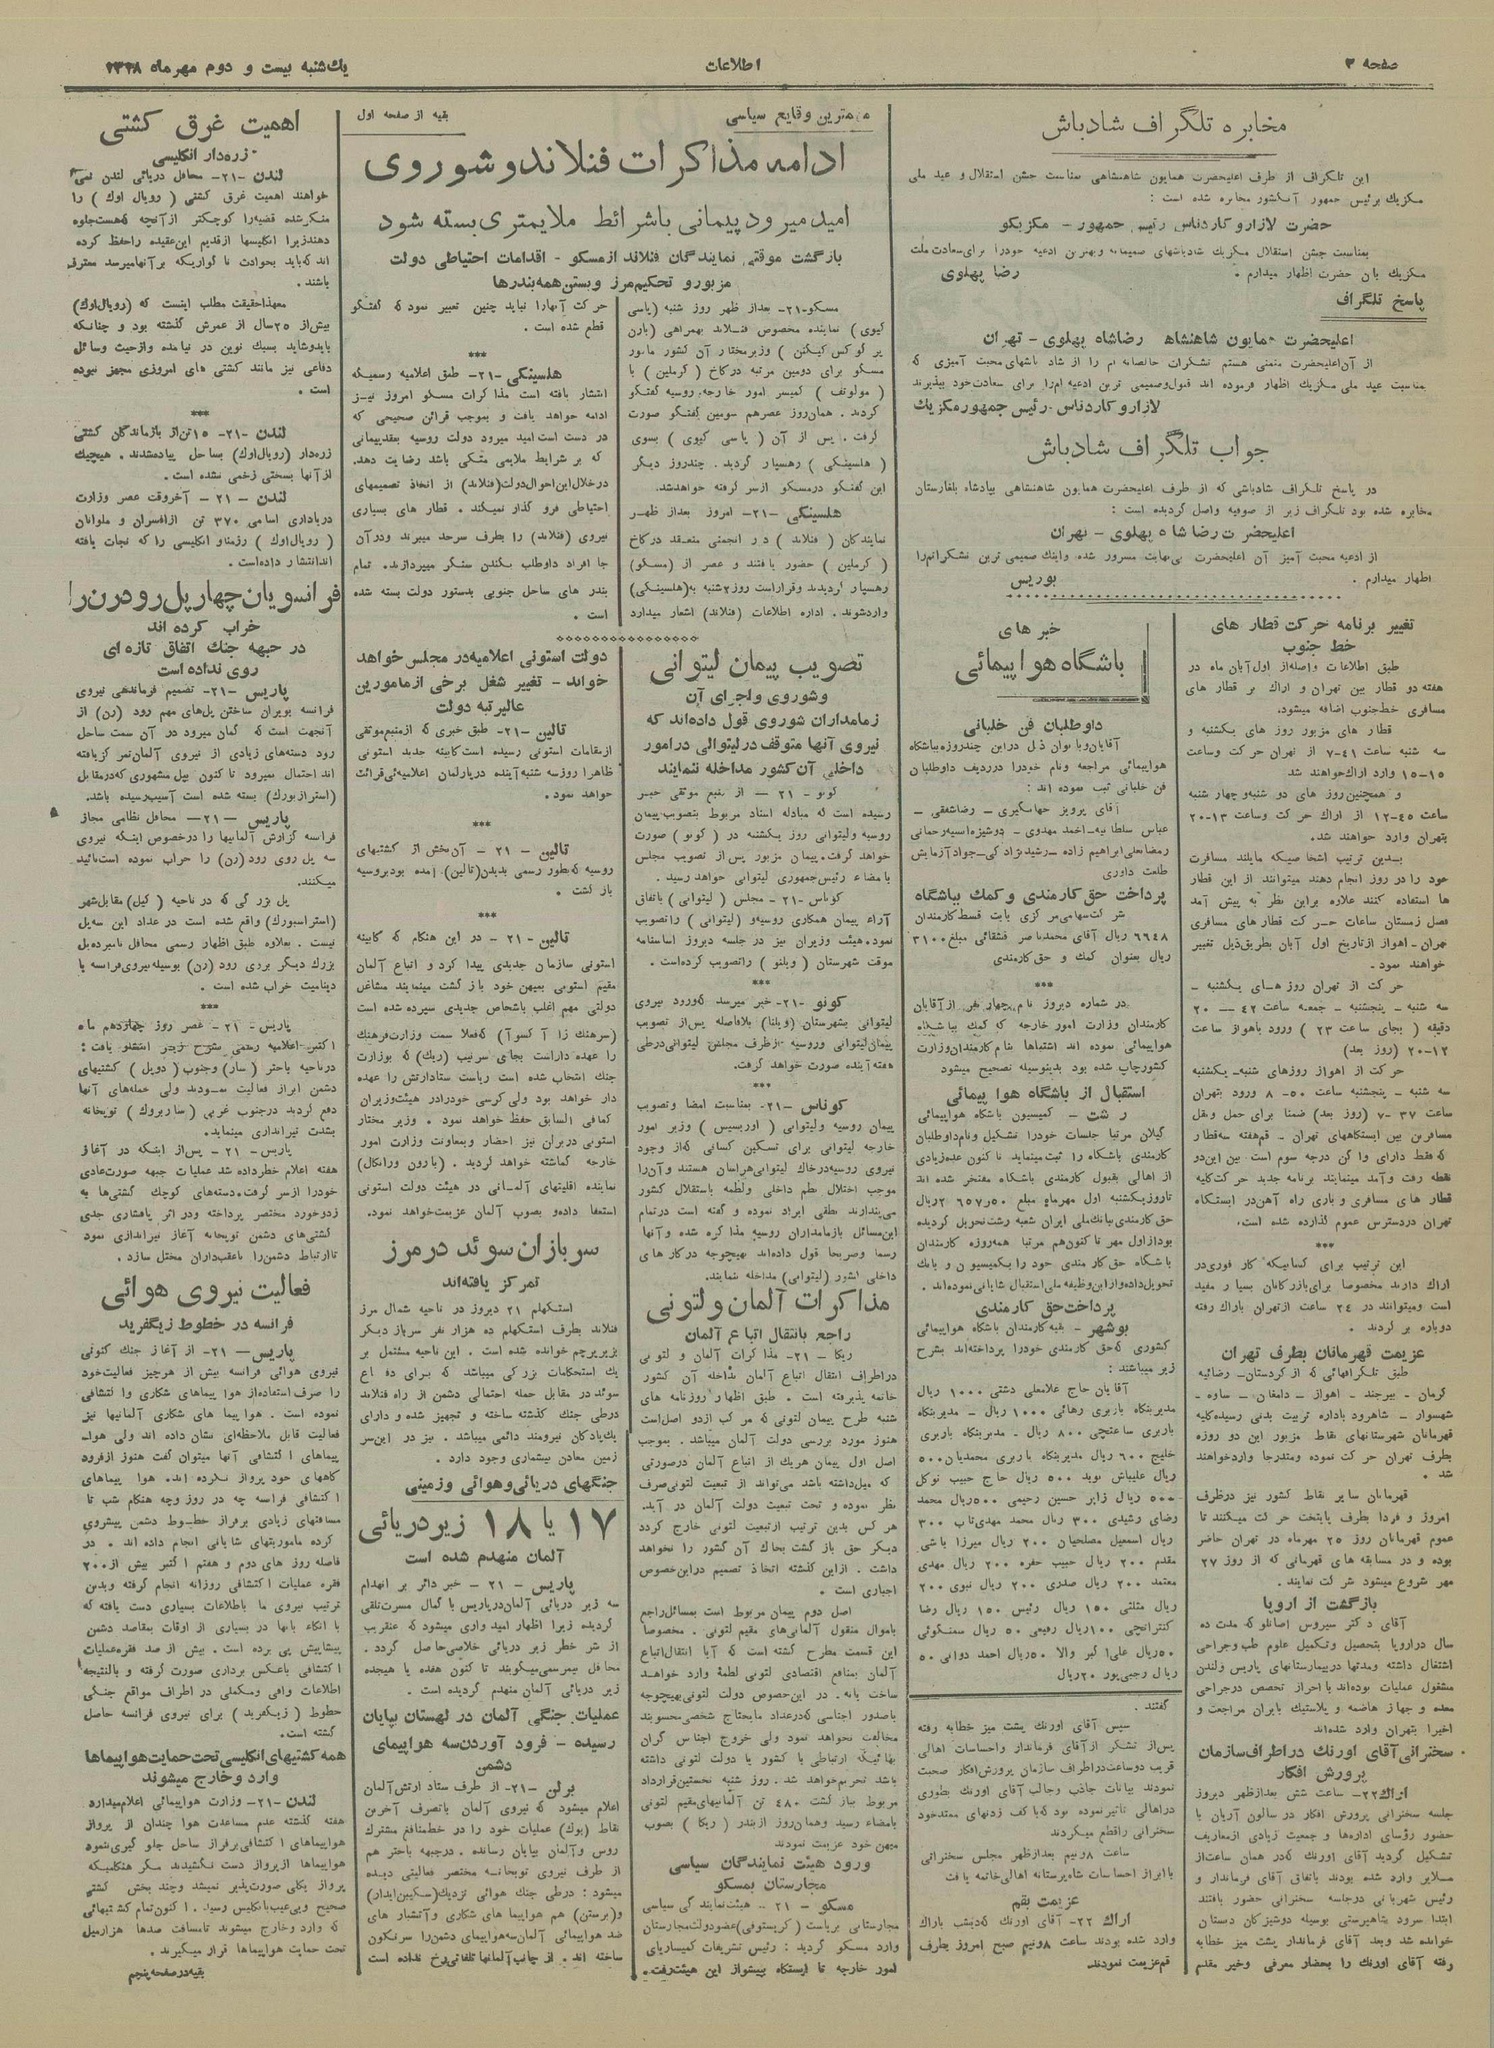 صفحه ۲
اطلاعات
یک‌شنبه بیست و دوم مهرماه
مخابره تلگراف شادباش
این تلگراف از طرف اعلیحضرت همایون شاهنشاهی بمناسبت جشن استقلال و عید ملی
مکزیک برئیس جمهور آنکشور مخابره شده است :
حضرت لازارو کاردناس رئیس جمهور - مکزیکو
بمناسبت جشن استقلال مکزیک شادباشهای صمیمانه و بهترین ادعیه خودرا برای سعادت ملت
مکزیک بان حضرت اظهار میدارم .
رضا پهلوی
پاسخ تلگراف
اعلیحضرت همایون شاهنشاه رضاشاه پهلوی - تهران
از آن اعلیحضرت متمنی هستم تشکرات خالصانه ام را از شاد باشهای محبت آمیزی که
بمناسبت عید ملی مکزیک اظهار فرموده اند قبول وصمیمی ترین ادعیه ام را برای سعادت خود بپذیرند
لازارو کاردناس - رئیس جمهور مکزیک
جواب تلگراف شادباش
در پاسخ تلگراف شادباشی که از طرف اعلیحضرت همایون شاهنشاهی بپادشاه بلغارستان
مخابره شده بود تلگراف زیر از صوفیه واصل گردیده است :
اعلیحضرت رضا شاه پهلوی - تهران
از ادعیه محبت آمیز آن اعلیحضرت بی‌نهایت مسرور شده و اینک صمیمی ترین تشکراتم را
اظهار میدارم .
بوریس
تغییر برنامه حرکت قطار های
خط جنوب
طبق اطلاعات واصله از اول آبان ماه در
هفته دو قطار بین تهران و اراک بر قطار های
مسافری خط جنوب اضافه میشود.
قطار های مزبور روز های یکشنبه و
سه شنبه ساعت ۴۱-۷ از تهران حرکت وساعت
۱۵-۱۵ وارد اراک خواهند شد
و همچنین روز های دو شنبه و چهار شنبه
ساعت ۴۵-۱۲ از اراک حرکت وساعت ۱۳-۲۰
بتهران وارد خواهند شد.
بدین ترتیب اشخاصیکه مایلند مسافرت
خود را در روز انجام دهند میتوانند از این قطار
ها استفاده کنند علاوه براین نظر به پیش آمد
فصل زمستان ساعات حرکت قطار های مسافری
تهران - اهواز ازتاریخ اول آبان بطریق ذیل تغییر
خواهند نمود.
حرکت از تهران روز های یکشنبه -
سه شنبه - پنجشنبه - جمعه ساعت ۴۲ — ۲۰
دقیقه ( بجای ساعت ۲۳ ) ورود باهواز ساعت
۱۲-۲۰ (روز بعد)
حرکت از اهواز روزهای شنبه - یکشنبه
سه شنبه - پنجشنبه ساعت ۵۰-۸ ورود بتهران
ساعت ۳۷-۷ (روز بعد) ضمنا برای حمل و نقل
مسافرین بین ایستگاههای تهران - قم هفته سه قطار
که فقط دارای واگن درجه سوم است بین این دو
نقطه رفت و آمد مینمایند برنامه جدید حرکت کلیه
قطار های مسافری و باری راه آهن در ایستگاه
تهران دردسترس عموم گذارده شده است.
***
این ترتیب برای کسانیکه کار فوری در
اراک دارند مخصوصا برای بازرگانان بسیار مفید
است ومیتوانند در ۲۴ ساعت ازتهران باراک رفته
دوباره برگردند .
عزیمت قهرمانان بطرف تهران
طبق تلگرافهائی که از کردستان - رضائیه
کرمان - بیرجند - اهواز - دامغان - ساوه -
شهسوار - شاهرود باداره تربیت بدنی رسیده کلیه
قهرمانان شهرستانهای نقاط مزبور این دو روزه
بطرف تهران حرکت نموده ومتدرجا وارد خواهند
شد .
قهرمانان سایر نقاط کشور نیز درظرف
امروز و فردا بطرف پایتخت حرکت میکنند تا
عموم قهرمانان روز ۲۵ مهرماه در تهران حاضر
بوده و در مسابقه های قهرمانی که از روز ۲۷
مهر شروع میشود شرکت نمایند .
بازگشت از اروپا
آقای دکتر سیروس اصانلو که مدت ده
سال دراروپا بتحصیل وتکمیل علوم طب وجراحی
اشتغال داشته ومدتها در بیمارستانهای پاریس ولندن
مشغول عملیات بوده‌اند با احراز تخصص درجراحی
معده و جهاز هاضمه و پلاستیک بایران مراجعت و
اخیرا بتهران وارد شده‌اند
سخنرانی آقای اورنگ در اطراف سازمان
پرورش افکار
اراک ۲۲- ساعت شش بعدازظهر دیروز
جلسه سخنرانی پرورش افکار در سالون آریان با
حضور رؤسای اداره‌ها و جمعیت زیادی ازمعاریف
تشکیل گردید آقای اورنگ که در همان ساعت از
ملایر وارد شده بودند باتفاق آقای فرماندار و
رئیس شهربانی درجلسه سخنرانی حضور یافتند
ابتدا سرود شاهپرستی بوسیله دوشیزگان دبستان
خوانده شد وبعد آقای فرماندار پشت میز خطابه
رفته آقای اورنگ را بحضار معرفی وخیر مقدم
خبر های
باشگاه هواپیمائی
داوطلبان فن خلبانی
آقایان وبانوان ذیل دراین چندروزه بباشگاه
هواپیمائی مراجعه ونام خودرا درردیف داوطلبان
فن خلبانی ثبت نموده اند :
آقای پرویز جهانگیری - رضا شفقی -
عباس سلطانیه - احمد مهدوی - دوشیزه انسیه رحمانی
رمضانعلی ابراهیم زاده - رشید نژاد کی - جواد آزمایش
طلعت داوری
پرداخت حق کارمندی و کمک بباشگاه
شرکت سهامی مرکزی بابت قسط کارمندان
۶۶۴۸ ریال آقای محمد ناصر قشقائی مبلغ ۳۱۰۰
ریال بعنوان کمک و حق کارمندی
***
در شماره دیروز نام چهار نفر از آقایان
کارمندان وزارت امور خارجه که کمک بباشگاه
هواپیمائی نموده اند اشتباها بنام کارمندان وزارت
کشور چاپ شده بود بدینوسیله تصحیح میشود
استقبال از باشگاه هوا پیمائی
رشت - کمیسیون باشگاه هواپیمائی
گیلان مرتبا جلسات خودرا تشکیل ونام داوطلبان
کارمندی باشگاه را ثبت مینماید تا کنون عده زیادی
از اهالی بقبول کارمندی باشگاه مفتخر شده اند
تا روز یکشنبه اول مهرماه مبلغ ۲۰۶۵۷٫۵۰ ریال
حق کارمندی ببانک ملی ایران شعبه رشت تحویل گردیده
بود از اول مهر تا کنون هم مرتبا همه روزه کارمندان
باشگاه حق کارمندی خود را بکمیسیون و بانک
تحویل داده و از این وظیفه ملی استقبال شایانی نموده‌اند .
پرداخت حق کارمندی
بوشهر - بقیه کارمندان باشگاه هواپیمائی
کشوری که حق کارمندی خودرا پرداخته‌اند بشرح
زیر میباشند :
آقایان حاج غلامعلی دشتی ۱۰۰۰ ریال
مدیر بنگاه باربری رهائی ۱۰۰۰ ریال - مدیر بنگاه
باربری ساعتچی ۸۰۰ ریال - مدیر بنگاه باربری
خلیج ۶۰۰ ریال مدیر بنگاه باربری محمدیان ۵۰۰
ریال علیباش نوید ۵۰۰ ریال حاج حبیب توکل
۵۰۰ ریال زایر حسین رحیمی ۵۰۰ ریال محمد
رضای رشیدی ۳۰۰ ریال محمد مهدی تاب ۳۰۰
ریال اسمعیل مصلحیان ۲۰۰ ریال میرزا باشی
مقدم ۲۰۰ ریال حبیب حفره ۲۰۰ ریال مهدی
معتمد ۲۰۰ ریال صدری ۲۰۰ ریال نبوی ۲۰۰
ریال مثلثی ۱۵۰ ریال رئیس ۱۵۰ ریال رضا
کنتراتچی ۱۰۰ ریال رفیعی ۵۰ ریال سمنگوئی
۵۰ ریال علی اکبر والا ۵۰ ریال احمد دوانی ۵۰
ریال رجبی پور ۲۰ ریال
گفتند .
سپس آقای اورنگ پشت میز خطابه رفته
پس از تشکر از آقای فرماندار واحساسات اهالی
قریب دوساعت دراطراف سازمان پرورش افکار صحبت
نمودند بیانات جاذب وجالب آقای اورنگ بطوری
دراهالی تاثیر نموده بود که با کف زدنهای ممتد خود
سخنرانی راقطع میکردند
ساعت ۸ ونیم بعدازظهر مجلس سخنرانی
با ابراز احساسات شاه پرستانه اهالی خاتمه یافت
عزیمت بقم
اراک ۲۲- آقای اورنگ که دیشب باراک
وارد شده بودند ساعت ۸ ونیم صبح امروز بطرف
قم عزیمت نمودند.
مهمترین وقایع سیاسی
بقیه از صفحه اول
ادامه مذاکرات فنلاند و شوروی
امید میرود پیمانی باشرائط ملایمتری بسته شود
بازگشت موقتی نمایندگان فنلاند از مسکو - اقدامات احتیاطی دولت
مزبور و تحکیم مرز و بستن همه بندرها
مسکو-۲۱- بعداز ظهر روز شنبه (پاسی
کیوی) نماینده مخصوص فنلاند بهمراهی (بارن
یر کوس کیکنن) وزیرمختار آن کشور مامور
مسکو برای دومین مرتبه درکاخ (کرملین) با
(مولوتف) کمیسر امور خارجه روسیه گفتگو
کردند. همان روز عصر هم سومین گفتگو صورت
گرفت. پس از آن (پاسی کیوی) بسوی
(هلسینکی) رهسپار گردید. چند روز دیگر
این گفتگو درمسکو ازسر گرفته خواهد شد.
هلسینکی -۲۱- امروز بعداز ظهر
نمایندگان (فنلاند) در انجمنی منعقد درکاخ
(کرملین) حضور یافتند و عصر از (مسکو)
رهسپار گردیدند وقرار است روز ۲ شنبه به (هلسینکی)
وارد شوند. اداره اطلاعات (فنلاند) اشعار میدارد
حرکت آنهارا نباید چنین تعبیر نمود که گفتگو
قطع شده است .
***
هلسینکی -۲۱- طبق اعلامیه رسمیکه
انتشار یافته است مذاکرات مسکو امروز نیز
ادامه خواهد یافت و بموجب قرائن صحیحی که
در دست است امید میرود دولت روسیه بعقد پیمانی
که بر شرایط ملایمی متکی باشد رضایت دهد.
درخلال این احوال دولت (فنلاند) از اتخاذ تصمیمهای
احتیاطی فرو گذار نمیکند . قطار های بسیاری
نیروی (فنلاند) را بطرف سرحد میبرند و در آن
جا افراد داوطلب بکندن سنگر میپردازند. تمام
بندر های ساحل جنوبی بدستور دولت بسته شده
است .
تصویب پیمان لیتوانی
وشوروی و اجرای آن
زمامداران شوروی قول داده‌اند که
نیروی آنها متوقف در لیتوانی در امور
داخلی آن کشور مداخله ننمایند
کونو - ۲۱ - از منبع موثقی خبر
رسیده است که مبادله اسناد مربوط بتصویب پیمان
روسیه ولیتوانی روز یکشنبه در (کونو) صورت
خواهد گرفت. پیمان مزبور پس از تصویب مجلس
بامضاء رئیس جمهوری لیتوانی خواهد رسید.
کوناس -۲۱- مجلس (لیتوانی) باتفاق
آراء پیمان همکاری روسیه و (لیتوانی) راتصویب
نمود. هیئت وزیران نیز در جلسه دیروز اساسنامه
موقت شهرستان (ویلنو) راتصویب کرده است.
***
کونو -۲۱- خبر میرسد که ورود نیروی
لیتوانی بشهرستان (ویلنا) بلافاصله پس از تصویب
پیمان لیتوانی وروسیه ازطرف مجلس لیتوانی درطی
هفته آینده صورت خواهد گرفت.
***
کوناس -۲۱- بمناسبت امضا وتصویب
پیمان روسیه ولیتوانی (اوربسیس) وزیر امور
خارجه لیتوانی برای تسکین کسانی که از وجود
نیروی روسیه درخاک لیتوانی هراسان هستند و آن را
موجب اختلال نظم داخلی ولطمه باستقلال کشور
می‌پندارند نطقی ایراد نموده و گفته است درتمام
این مسائل بازمامداران روسیه مذاکره شده و آنها
رسما وصریحا قول داده‌اند بهیچوجه در کار های
داخلی کشور (لیتوانی) مداخله ننمایند.
مذاکرات آلمان و لتونی
راجع بانتقال اتباع آلمان
ریگا - ۲۱- مذاکرات آلمان و لتونی
دراطراف انتقال اتباع آلمان بداخله آن کشور
خاتمه پذیرفته است . طبق اظهار روزنامه های
شنبه طرح پیمان لتونی که مرکب ازدو اصل است
هنوز مورد بررسی دولت آلمان میباشد . بموجب
اصل اول پیمان هریک از اتباع آلمان درصورتی
که میل داشته باشد می‌تواند از تبعیت لتونی صرف
نظر نموده و تحت تبعیت دولت آلمان در آید.
هر کس بدین ترتیب ازتبعیت لتونی خارج گردد
دیگر حق بازگشت بخاک آن کشور را نخواهد
داشت . ازاین گذشته اتخاذ تصمیم دراین خصوص
اجباری است .
اصل دوم پیمان مربوط است بمسائل راجع
باموال منقول آلمانی‌های مقیم لتونی . مخصوصا
این قسمت مطرح گشته است که آیا انتقال اتباع
آلمان بمنافع اقتصادی لتونی لطمه وارد خواهد
ساخت یا نه. در این خصوص دولت لتونی بهیچوجه
باصدور اجناسی که درعداد مایحتاج شخصی محسوبند
مخالفت نخواهد نمود ولی خروج اجناس گران
بهائیکه ارتباطی با کشور یا دولت لتونی داشته
باشد تحریم خواهد شد . روز شنبه نخستین قرارداد
مربوط بباز گشت ۴۸۰ تن آلمانیهای مقیم لتونی
بامضاء رسید وهمان روز از بندر (ریگا) بصوب
میهن خود عزیمت نمودند
ورود هیئت نمایندگان سیاسی
مجارستان بمسکو
مسکو - ۲۱ - هیئت نمایندگی سیاسی
مجارستانی بریاست (کریستوفی) عضو دولت مجارستان
وارد مسکو گردید : رئیس تشریفات کمیساریای
امور خارجه تا ایستگاه بپیشواز این هیئت رفت .
دولت استونی اعلامیه در مجلس خواهد
خواند - تغییر شغل برخی از مامورین
عالیرتبه دولت
تالین -۲۱- طبق خبری که از منبع موثقی
ازمقامات استونی رسیده است کابینه جدید استونی
ظاهرا روز سه شنبه آینده درپارلمان اعلامیه‌ئی قرائت
خواهد نمود.
***
تالین - ۲۱ - آن بخش از کشتیهای
روسیه که بطور رسمی بدیدن (تالین) آمده بود بروسیه
باز گشت
***
تالین - ۲۱ - در این هنگام که کابینه
استونی سازمان جدیدی پیدا کرد و اتباع آلمان
مقیم استونی بمیهن خود باز گشت مینمایند مشاغل
دولتی مهم اغلب باشخاص جدیدی سپرده شده است
(سرهنگ زا آکسوآ) که فعلا سمت وزارت فرهنگ
را عهده داراست بجای سرتیب (ریک) که بوزارت
جنک انتخاب شده است ریاست ستاد ارتش را عهده
دار خواهد بود ولی کرسی خودرادر هیئت وزیران
کمافی السابق حفظ خواهد نمود . وزیر مختار
استونی در برلن نیز احضار وبمعاونت وزارت امور
خارجه گماشته خواهد گردید. (بارون ورانگل)
نماینده اقلیتهای آلمانی در هیئت دولت استونی
استعفا داده و بصوب آلمان عزیمت خواهد نمود.
سربازان سوئد در مرز
تمرکز یافته‌اند
استکهلم ۲۱ دیروز در ناحیه شمال مرز
فنلاند بطرف استکهلم ده هزار نفر سرباز دیگر
بزیر پرچم خوانده شده است . این ناحیه مشتمل بر
یک استحکامات بزرگی میباشد که برای دفاع
سوئد در مقابل حمله احتمالی دشمن از راه فنلاند
درطی جنک گذشته ساخته و تجهیز شده و دارای
یک پادگان نیرومند دائمی میباشد . نیز در این سر
زمین معادن بیشماری وجود دارد .
جنگهای دریائی و هوائی و زمینی
۱۷ یا ۱۸ زیر دریائی
آلمان منهدم شده است
پاریس - ۲۱ - خبر دائر بر انهدام
سه زیر دریائی آلمان درپاریس با کمال مسرت تلقی
گردیده زیرا اظهار امید واری میشود که عنقریب
از شر خطر زیر دریائی خلاصی حاصل گردد .
محافل نیمرسمی میگویند تا کنون هفده یا هیجده
زیر دریائی آلمان منهدم گردیده است .
عملیات جنگی آلمان در لهستان بپایان
رسیده - فرود آوردن سه هواپیمای
دشمن
برلن -۲۱- از طرف ستاد ارتش آلمان
اعلام میشود که نیروی آلمان باتصرف آخرین
نقاط (بوک) عملیات خود را در خط منافع مشترک
روس و آلمان بپایان رسانده . درجبهه باختر هم
از طرف نیروی توپخانه مختصر فعالیتی دیده
میشود : درطی جنک هوائی نزدیک (سکیبن ابدار)
و (برستن) هم هواپیما های شکاری و آتشبار های
ضد هواپیمائی آلمان سه هواپیمای دشمن را سرنگون
ساخته اند . از جانب آلمانها تلفاتی رخ نداده است
اهمیت غرق کشتی
زره‌دار انگلیسی
لندن -۲۱- محافل دریائی لندن نمی
خواهند اهمیت غرق کشتی (رویال اوک) را
منکر شده قضیه را کوچکتر از آنچه که هست جلوه
دهند زیرا انگلیسها ازقدیم این عقیده راحفظ کرده
اند که باید بحوادث ناگواریکه بر آنها میرسد معترف
باشند .
معهذا حقیقت مطلب اینست که (رویال اوک)
بیش از ۲۵ سال از عمرش گذشته بود و چنانکه
باید و شاید بسبک نوین در نیامده و از حیث وسائل
دفاعی نیز مانند کشتی های امروزی مجهز نبوده
است .
***
لندن -۲۱- ۱۵ تن از بازماندگان کشتی
زره‌دار (رویال اوک) بساحل پیاده شدند . هیچیک
از آنها بسختی زخمی نشده است .
لندن - ۲۱ - آخر وقت عصر وزارت
دریاداری اسامی ۳۷۰ تن از افسران و ملوانان
(رویال اوک) رزمناو انگلیسی را که نجات یافته
اند انتشار داده است .
فرانسویان چهار پل رود رن را
خراب کرده اند
در جبهه جنک اتفاق تازه ای
روی نداده است
پاریس -۲۱- تصمیم فرماندهی نیروی
فرانسه بویران ساختن پل‌های مهم رود (رن) از
آنجهت است که گمان میرود در آن سمت ساحل
رود دسته‌های زیادی از نیروی آلمان تمرکز یافته
اند احتمال نمیرود تا کنون بپل مشهوری که در مقابل
(استرازبورک) بسته شده است آسیب رسیده باشد.
پاریس -۲۱- محافل نظامی مجاز
فرانسه گزارش آلمانیها را درخصوص اینکه نیروی
سه پل روی رود (رن) را خراب نموده است تائید
میکنند.
پل بزرگی که در ناحیه (کیل) مقابل شهر
(استراسبورک) واقع شده است در عداد این سه پل
نیست . بعلاوه طبق اظهار رسمی محافل نامبرده پل
بزرک دیگر بر روی رود (رن) بوسیله نیروی فرانسه با
دینامیت خراب شده است .
***
پاریس - ۲۱ - عصر روز چهاردهم ماه
اکتبر اعلامیه رسمی بشرح زیر انتشار یافت :
درناحیه باختر (سار) وجنوب (دوپل) کشتیهای
دشمن ابراز فعالیت نمودند ولی حمله‌های آنها
دفع گردید درجنوب غربی (ساربروک) توپخانه
بشدت تیراندازی مینماید.
پاریس - ۲۱ - پس از اینکه در آغاز
هفته اعلام خطر داده شد عملیات جبهه صورت عادی
خود را ازسر گرفت. دسته‌های کوچک گشتی‌ها به
زد و خورد مختصر پرداخته و در اثر پافشاری جدی
گشتی‌های دشمن توپخانه آغاز تیراندازی نمود
تا ارتباط دشمن را باعقب‌داران مختل سازد .
فعالیت نیروی هوائی
فرانسه در خطوط زیگفرید
پاریس - ۲۱- از آغاز جنک کنونی
نیروی هوائی فرانسه بیش از هرچیز فعالیت خود
را صرف استفاده از هوا پیماهای شکاری وا کتشافی
نموده است . هوا پیما های شکاری آلمانیها نیز
فعالیت قابل ملاحظه‌ای نشان داده اند ولی هوا-
پیماهای اکتشافی آنها میتوان گفت هنوز از فرود
گاههای خود پرواز نکرده اند. هوا پیماهای
اکتشافی فرانسه چه در روز وچه هنگام شب تا
مسافتهای زیادی بر فراز خطوط دشمن پیشروی
کرده ماموریتهای شایانی انجام داده اند . در
فاصله روز های دوم و هفتم اکتبر بیش از ۲۰۰
فقره عملیات اکتشافی روزانه انجام گرفته وبدین
ترتیب نیروی ما باطلاعات بسیاری دست یافته که
با اتکاء بانها در بسیاری از اوقات بمقاصد دشمن
پیشاپیش پی برده است . بیش از صد فقره عملیات
اکتشافی باعکس برداری صورت گرفته و بالنتیجه
اطلاعات وافی ومکملی در اطراف مواقع جنگی
خطوط (زیگفرید) برای نیروی فرانسه حاصل
گشته است.
همه کشتیهای انگلیسی تحت حمایت هواپیماها
وارد و خارج میشوند
لندن -۲۱- وزارت هواپیمائی اعلام میدارد
هفته گذشته عدم مساعدت هوا چندان از پرواز
هواپیماهای اکتشافی بر فراز ساحل جلو گیری ننمود
هواپیماها ازپرواز دست نکشیدند مگر هنگامیکه
پرواز بکلی صورت پذیر نمیشد وچند بخش کشتی
صحیح وبی عیب بانگلیس رسید. اکنون تمام کشتیهائی
که وارد وخارج میشوند تا مسافت صدها هزار میل
تحت حمایت هواپیماها قرار میگیرند .
بقیه در صفحه پنجم